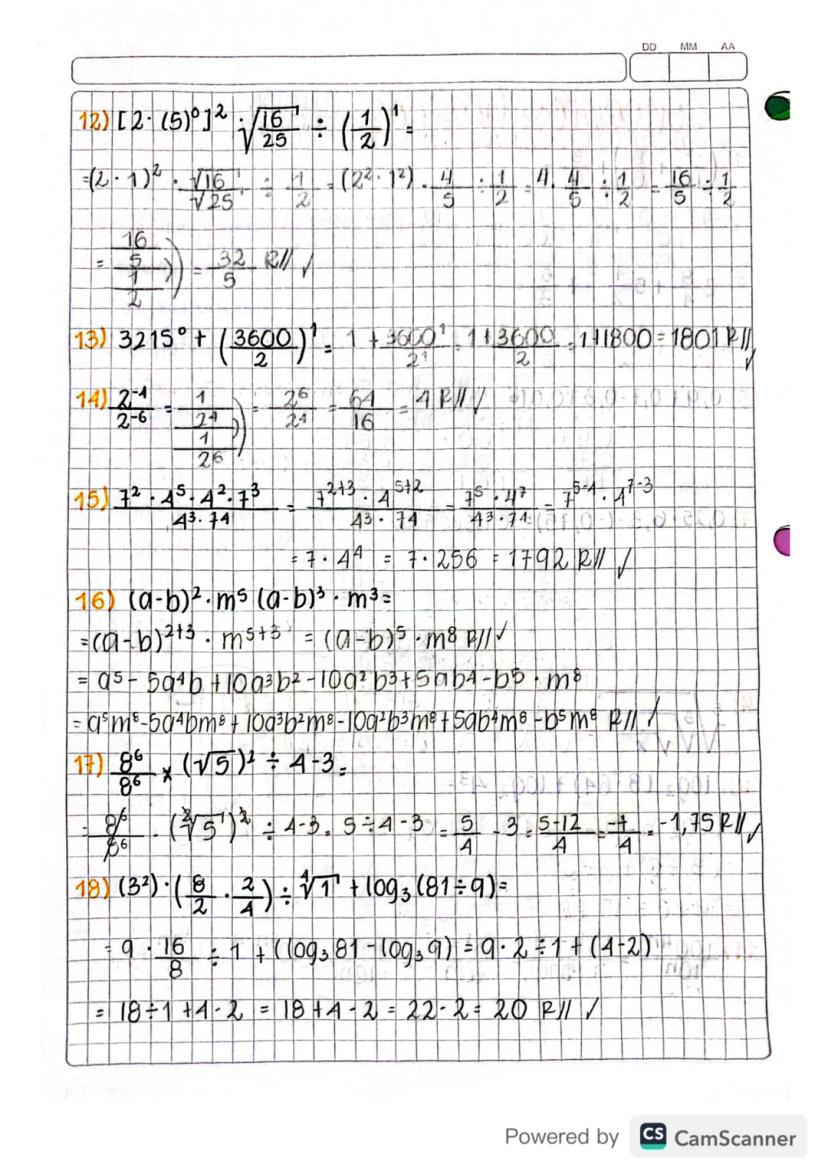 DD MM AA
12) [2 · (5)⁰]² · √(16/25) ÷ (1/2)¹ =
= (2 · 1)² · √16/√25 ÷ 1/2 = (2² · 1²) · 4/5 ÷ 1/2 = 4 · 4/5 ÷ 1/2 = 16/5 ÷ 1/2
= (16/5)/(1/2) = 32/5 R// ✓
13) 3215⁰ + (3600/2)¹ = 1 + 3600¹/2¹ = 1 + 3600/2 = 1+1800 = 1801 R// ✓
14) 2⁻⁴/2⁻⁶ = (1/2⁴)/(1/2⁶) = 2⁶/2⁴ = 64/16 = 4 R// ✓
15) (7² · 4⁵ · 4² · 7³)/(4³ · 7⁴) = (7²⁺³ · 4⁵⁺²)/(4³ · 7⁴) = (7⁵ · 4⁷)/(4³ · 7⁴) = 7⁵⁻⁴ · 4⁷⁻³
= 7 · 4⁴ = 7 · 256 = 1792 R// ✓
16) (a-b)² · m⁵ (a-b)³ · m³ =
= (a-b)²⁺³ · m⁵⁺³ = (a-b)⁵ · m⁸ R// ✓
= a⁵ - 5a⁴b + 10a³b² - 10a²b³ + 5ab⁴ - b⁵ · m⁸
= a⁵m⁸ - 5a⁴bm⁸ + 10a³b²m⁸ - 10a²b³m⁸ + 5ab⁴m⁸ - b⁵m⁸ R// ✓
17) 8⁶/8⁶ × (√5)² ÷ 4-3 =
= 8⁶/8⁶ · (²√5)² ÷ 4-3 = 5÷4-3 = 5/4 - 3 = (5-12)/4 = -7/4 = -1,75 R// ✓
18) (3²) · (8/2 · 2/4) ÷ ⁴√1 + log₃(81÷9) =
= 9 · 16/8 ÷ 1 + ((log₃81 - log₃9) = 9 · 2 ÷ 1 + (4-2)
= 18÷1 +4-2 = 18+4-2 = 22-2 = 20 R// ✓
Powered by CS CamScanner